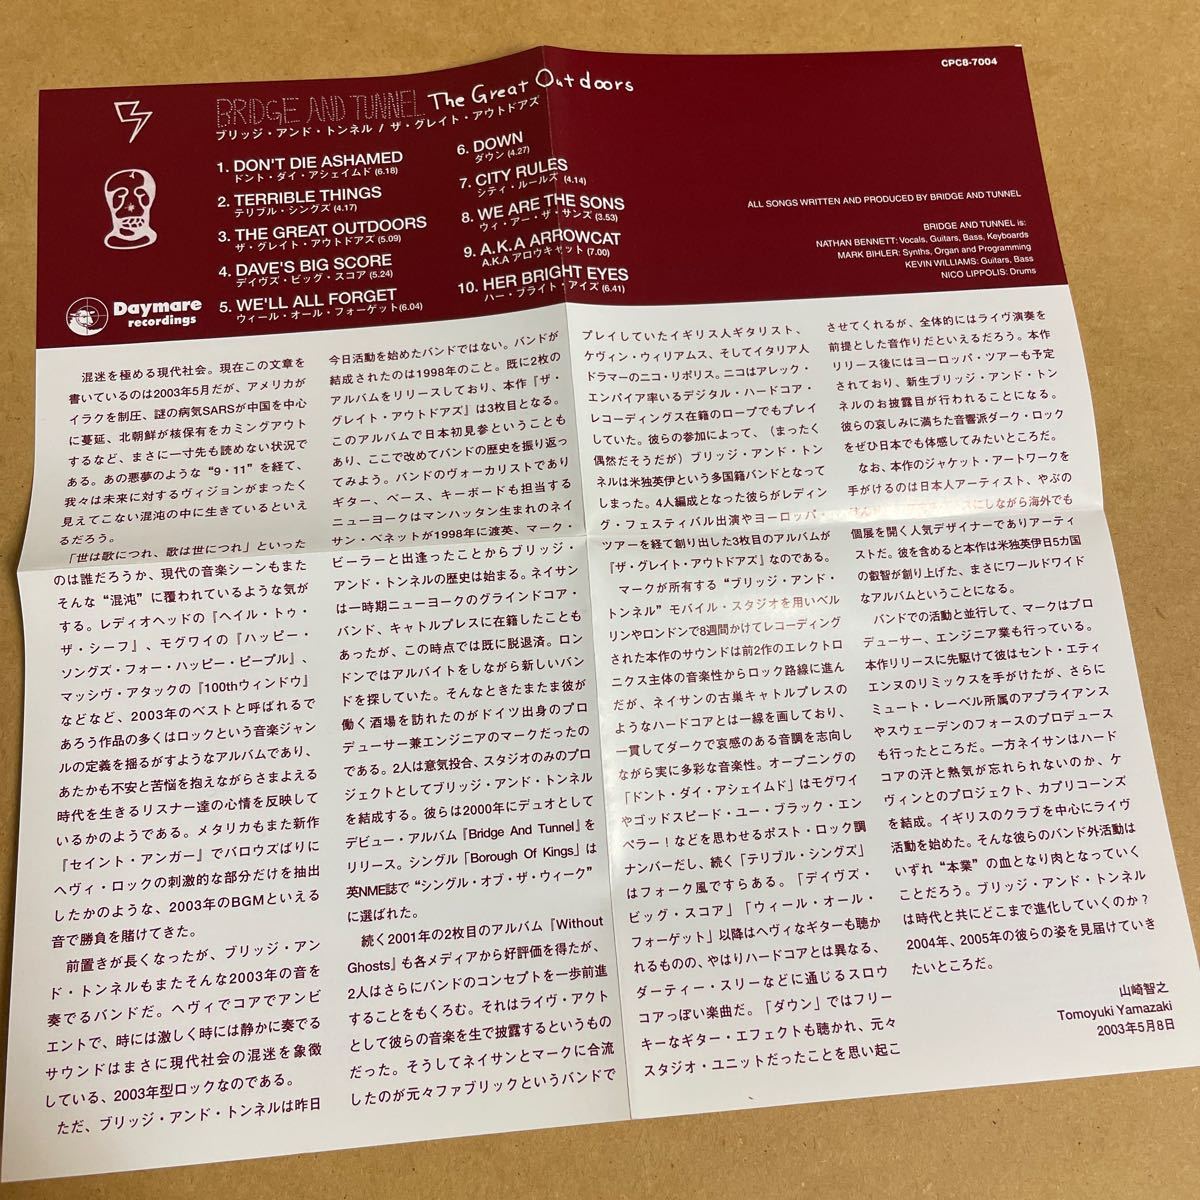 CPC8-7004
BRIDGE AND TUNNEL The Great Outdoors
ブリッジ・アンド・トンネル / ザ・グレイト・アウトドアズ
1. DON'T DIE ASHAMED
ドント・ダイ・アシェイムド (6.18)
2. TERRIBLE THINGS
テリブル・シングズ (4.17)
3. THE GREAT OUTDOORS
ザ・グレイト・アウトドアズ (5.09)
4. DAVE'S BIG SCORE
デイヴズ・ビッグ・スコア (5.24)
5. WE'LL ALL FORGET
ウィール・オール・フォーゲット (6.04)
6. DOWN
ダウン (4.27)
7. CITY RULES
シティ・ルールズ (4.14)
8. WE ARE THE SONS
ウィ・アー・ザ・サンズ (3.53)
9. A.K.A ARROWCAT
A.K.A アロウキャット (7.00)
10. HER BRIGHT EYES
ハー・ブライト・アイズ (6.41)
Daymare
recordings
ALL SONGS WRITTEN AND PRODUCED BY BRIDGE AND TUNNEL
BRIDGE AND TUNNEL is:
NATHAN BENNETT: Vocals, Guitars, Bass, Keyboards
MARK BIHLER: Synths, Organ and Programming
KEVIN WILLIAMS: Guitars, Bass
NICO LIPPOLIS: Drums
混迷を極める現代社会。現在この文章を
書いているのは2003年5月だが、アメリカが
イラクを制圧、謎の病気SARSが中国を中心
に蔓延、北朝鮮が核保有をカミングアウト
するなど、まさに一寸先も読めない状況で
ある。あの悪夢のような“9・11”を経て、
我々は未来に対するヴィジョンがまったく
見えてこない混沌の中に生きているといえ
るだろう。
「世は歌につれ、歌は世につれ」といった
のは誰だろうか、現代の音楽シーンもまた
そんな“混沌”に覆われているような気が
する。レディオヘッドの『ヘイル・トゥ・
ザ・シーフ』、モグワイの『ハッピー・
ソングズ・フォー・ハッピー・ピープル』、
マッシヴ・アタックの『100thウィンドウ』
などなど、2003年のベストと呼ばれるで
あろう作品の多くはロックという音楽ジャン
ルの定義を揺るがすようなアルバムであり、
あたかも不安と苦悩を抱えながらさまよえる
時代を生きるリスナー達の心情を反映して
いるかのようである。メタリカもまた新作
『セイント・アンガー』でバロウズばりに
ヘヴィ・ロックの刺激的な部分だけを抽出
したかのような、2003年のBGMといえる
音で勝負を賭けてきた。
前置きが長くなったが、ブリッジ・アン
ド・トンネルもまたそんな2003年の音を
奏でるバンドだ。ヘヴィでコアでアンビ
エントで、時には激しく時には静かに奏でる
サウンドはまさに現代社会の混迷を象徴
している、2003年型ロックなのである。
ただ、ブリッジ・アンド・トンネルは昨日
今日活動を始めたバンドではない。バンドが
結成されたのは1998年のこと。既に2枚の
アルバムをリリースしており、本作『ザ・
グレイト・アウトドアズ』は3枚目となる。
このアルバムで日本初見参ということも
あり、ここで改めてバンドの歴史を振り返っ
てみよう。バンドのヴォーカリストであり
ギター、ベース、キーボードも担当する
ニューヨークはマンハッタン生まれのネイ
サン・ベネットが1998年に渡英、マーク・
ビーラーと出逢ったことからブリッジ・
アンド・トンネルの歴史は始まる。ネイサン
は一時期ニューヨークのグラインドコア・
バンド、キャトルプレスに在籍したことも
あったが、この時点では既に脱退済。ロン
ドンではアルバイトをしながら新しいバン
ドを探していた。そんなときたまたま彼が
働く酒場を訪れたのがドイツ出身のプロ
デューサー兼エンジニアのマークだったの
である。2人は意気投合、スタジオのみのプロ
ジェクトとしてブリッジ・アンド・トンネル
を結成する。彼らは2000年にデュオとして
デビュー・アルバム『Bridge And Tunnel』を
リリース。シングル「Borough Of Kings」は
英NME誌で“シングル・オブ・ザ・ウィーク”
に選ばれた。
続く2001年の2枚目のアルバム『Without
Ghosts』も各メディアから好評価を得たが、
2人はさらにバンドのコンセプトを一歩前進
することをもくろむ。それはライヴ・アクト
として彼らの音楽を生で披露するというもの
だった。そうしてネイサンとマークに合流
したのが元々ファブリックというバンドで
プレイしていたイギリス人ギタリスト、
ケヴィン・ウィリアムス、そしてイタリア人
ドラマーのニコ・リポリス。ニコはアレック・
エンパイア率いるデジタル・ハードコア・
レコーディングス在籍のロープでもプレイ
していた。彼らの参加によって、（まったく
偶然だそうだが）ブリッジ・アンド・トン
ネルは米独英伊という多国籍バンドとなって
しまった。4人編成となった彼らがレディン
グ・フェスティバル出演やヨーロッパ・
ツアーを経て創り出した3枚目のアルバムが
『ザ・グレイト・アウトドアズ』なのである。
マークが所有する“ブリッジ・アンド・
トンネル”モバイル・スタジオを用いベル
リンやロンドンで8週間かけてレコーディング
された本作のサウンドは前2作のエレクトロ
ニクス主体の音楽性からロック路線に進ん
だが、ネイサンの古巣キャトルプレスの
ようなハードコアとは一線を画しており、
一貫してダークで哀感のある音調を志向し
ながら実に多彩な音楽性。オープニングの
「ドント・ダイ・アシェイムド」はモグワイ
やゴッドスピード・ユー・ブラック・エン
ペラー！などを思わせるポスト・ロック調
ナンバーだし、続く「テリブル・シングズ」
はフォーク風ですらある。「デイヴズ・
ビッグ・スコア」「ウィール・オール・
フォーゲット」以降はヘヴィなギターも聴か
れるものの、やはりハードコアとは異なる、
ダーティー・スリーなどに通じるスロウ
コアっぽい楽曲だ。「ダウン」ではフリー
キーなギター・エフェクトも聴かれ、元々
スタジオ・ユニットだったことを思い起こ
させてくれるが、全体的にはライヴ演奏を
前提とした音作りだといえるだろう。本作
リリース後にはヨーロッパ・ツアーも予定
されており、新生ブリッジ・アンド・トン
ネルのお披露目が行われることになる。
彼らの哀しみに満ちた音響派ダーク・ロック
をぜひ日本でも体感してみたいところだ。
なお、本作のジャケット・アートワークを
手がけるのは日本人アーティスト、やぶの
にしながら海外でも
個展を開く人気デザイナーでありアーティ
ストだ。彼を含めると本作は米独英伊日5カ国
の叡智が創り上げた、まさにワールドワイド
なアルバムということになる。
バンドでの活動と並行して、マークはプロ
デューサー、エンジニア業も行っている。
本作リリースに先駆けて彼はセント・エティ
エンヌのリミックスを手がけたが、さらに
ミュート・レーベル所属のアプライアンス
やスウェーデンのフォースのプロデュース
も行ったところだ。一方ネイサンはハード
コアの汗と熱気が忘れられないのか、ケ
ヴィンとのプロジェクト、カプリコーンズ
を結成。イギリスのクラブを中心にライヴ
活動を始めた。そんな彼らのバンド外活動は
いずれ“本業”の血となり肉となっていく
ことだろう。ブリッジ・アンド・トンネル
は時代と共にどこまで進化していくのか？
2004年、2005年の彼らの姿を見届けていき
たいところだ。
山崎智之
Tomoyuki Yamazaki
2003年5月8日